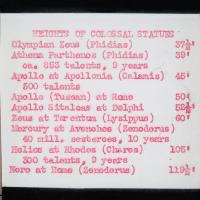 HEIGHTS OF COLOSSAL STATUES
Olympian Zeus (Phidias) 37½'
Athena Parthenos (Phidias) 39'
ca. 853 talents, 9 years
Apollo at Apollonia (Calamis) 45'
500 talents
Apollo (Tuscan) at Rome 50'
Apollo Sitalcas at Delphi
Zeus at Tarentum (Lysippus) 60'
Mercury at Avenohos (Zenodorus)
40 mill. sesterces, 10 years
Helios at Rhodes (Chares) 105'
300 talents, 9 years
Nero at Rome (Zenodorus) 119½'